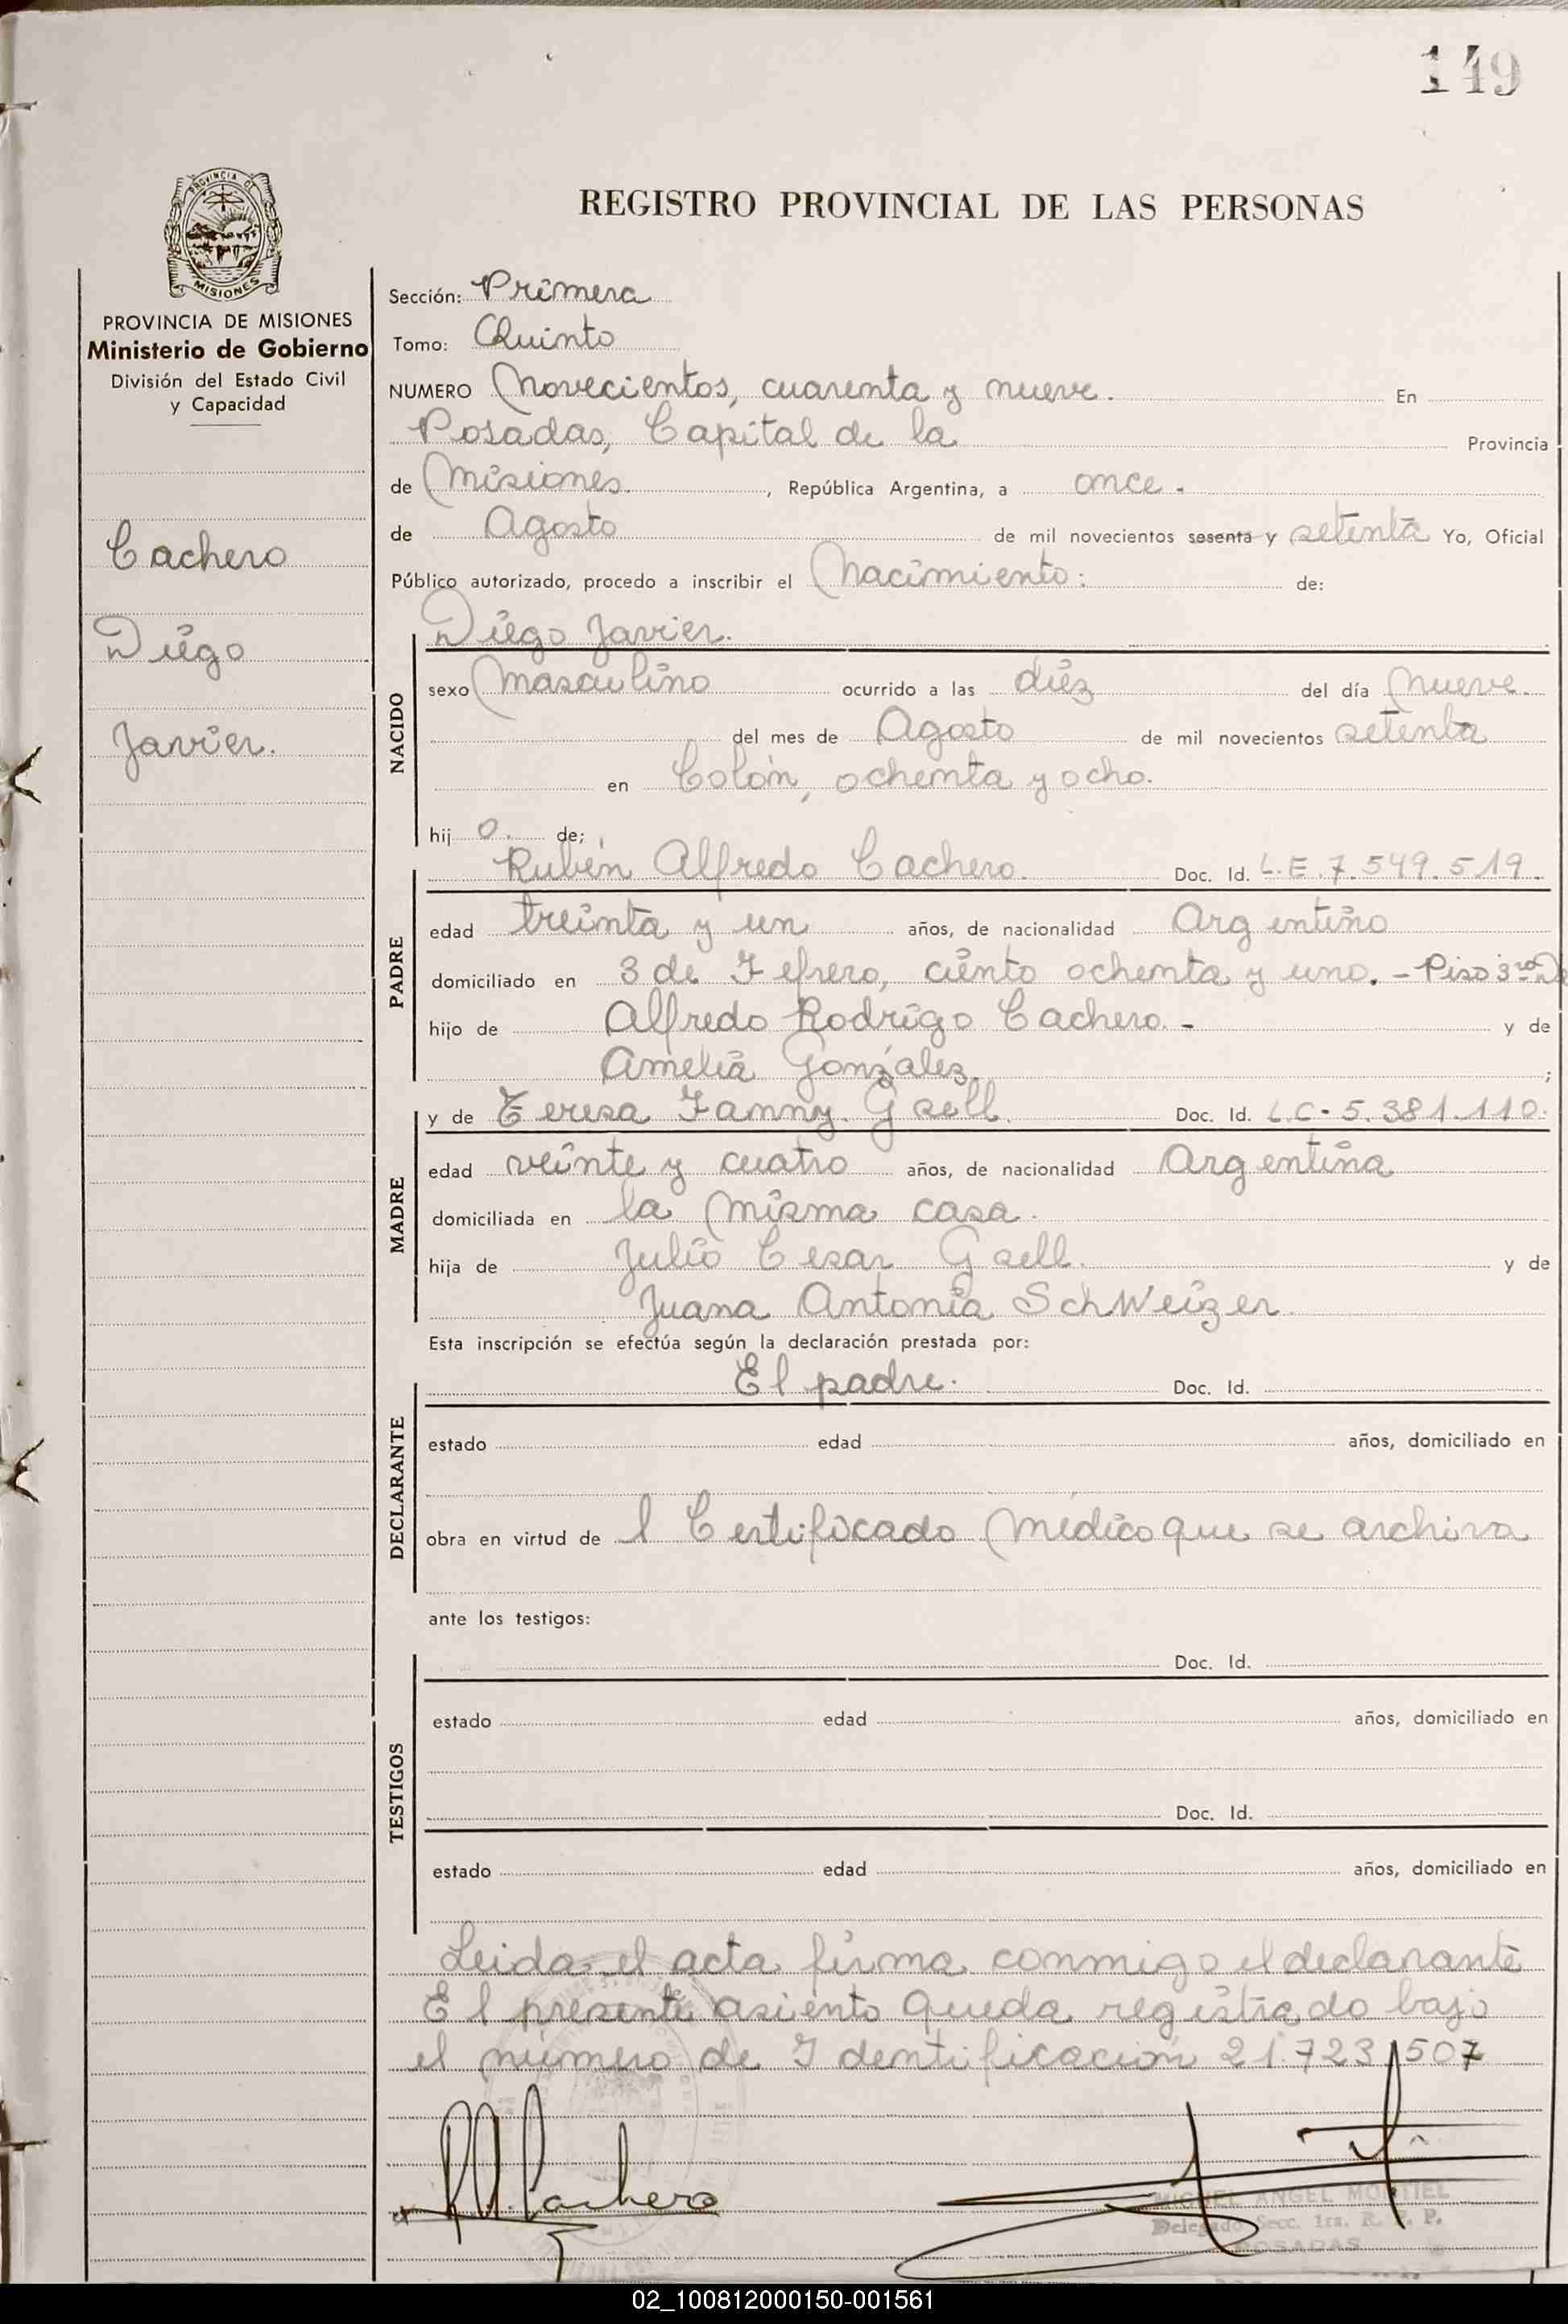 149
PROVINCIA DE
MISIONES
REGISTRO PROVINCIAL DE LAS PERSONAS
PROVINCIA DE MISIONES
Ministerio de Gobierno
División del Estado Civil
y Capacidad
Cachero
Diego
Javier.
Sección: Primera
Tomo: Quinto
NUMERO Novecientos, cuarenta y nueve. En
Posadas, Capital de la Provincia
de Misiones. , República Argentina, a once.
de Agosto de mil novecientos sesenta y setenta Yo, Oficial
Público autorizado, procedo a inscribir el Nacimiento: de:
NACIDO
Diego Javier.
sexo Masculino ocurrido a las diez del día Nueve.
del mes de Agosto de mil novecientos setenta
en Colón, ochenta y ocho.
hij o. de;
PADRE
Rubén Alfredo Cachero. Doc. Id. L.E. 7.549.519.
edad treinta y un años, de nacionalidad Argentino
domiciliado en 3 de Febrero, ciento ochenta y uno. - Piso 3ro
hijo de Alfredo Rodrigo Cachero. - y de
Amelia Gonzalez. ;
MADRE
y de Teresa Fanny. Gsell. Doc. Id. L.C. 5.381.110.
edad veinte y cuatro años, de nacionalidad Argentina
domiciliada en la misma casa.
hija de Julio Cesar Gsell. y de
Juana Antonia SchWeizer.
Esta inscripción se efectúa según la declaración prestada por:
DECLARANTE
El padre. Doc. Id.
estado edad años, domiciliado en
obra en virtud de l Certificado Médico que se archiva
ante los testigos:
TESTIGOS
Doc. Id.
estado edad años, domiciliado en
Doc. Id.
estado edad años, domiciliado en
Leida el acta firma conmigo el declarante
El presente asiento queda registrado bajo
el número de Identificación 21.723.507
R.A. Cachero
MIGUEL ANGEL MONTIEL
Delegado Secc. 1ra. R. P. P.
POSADAS
02_100812000150-001561